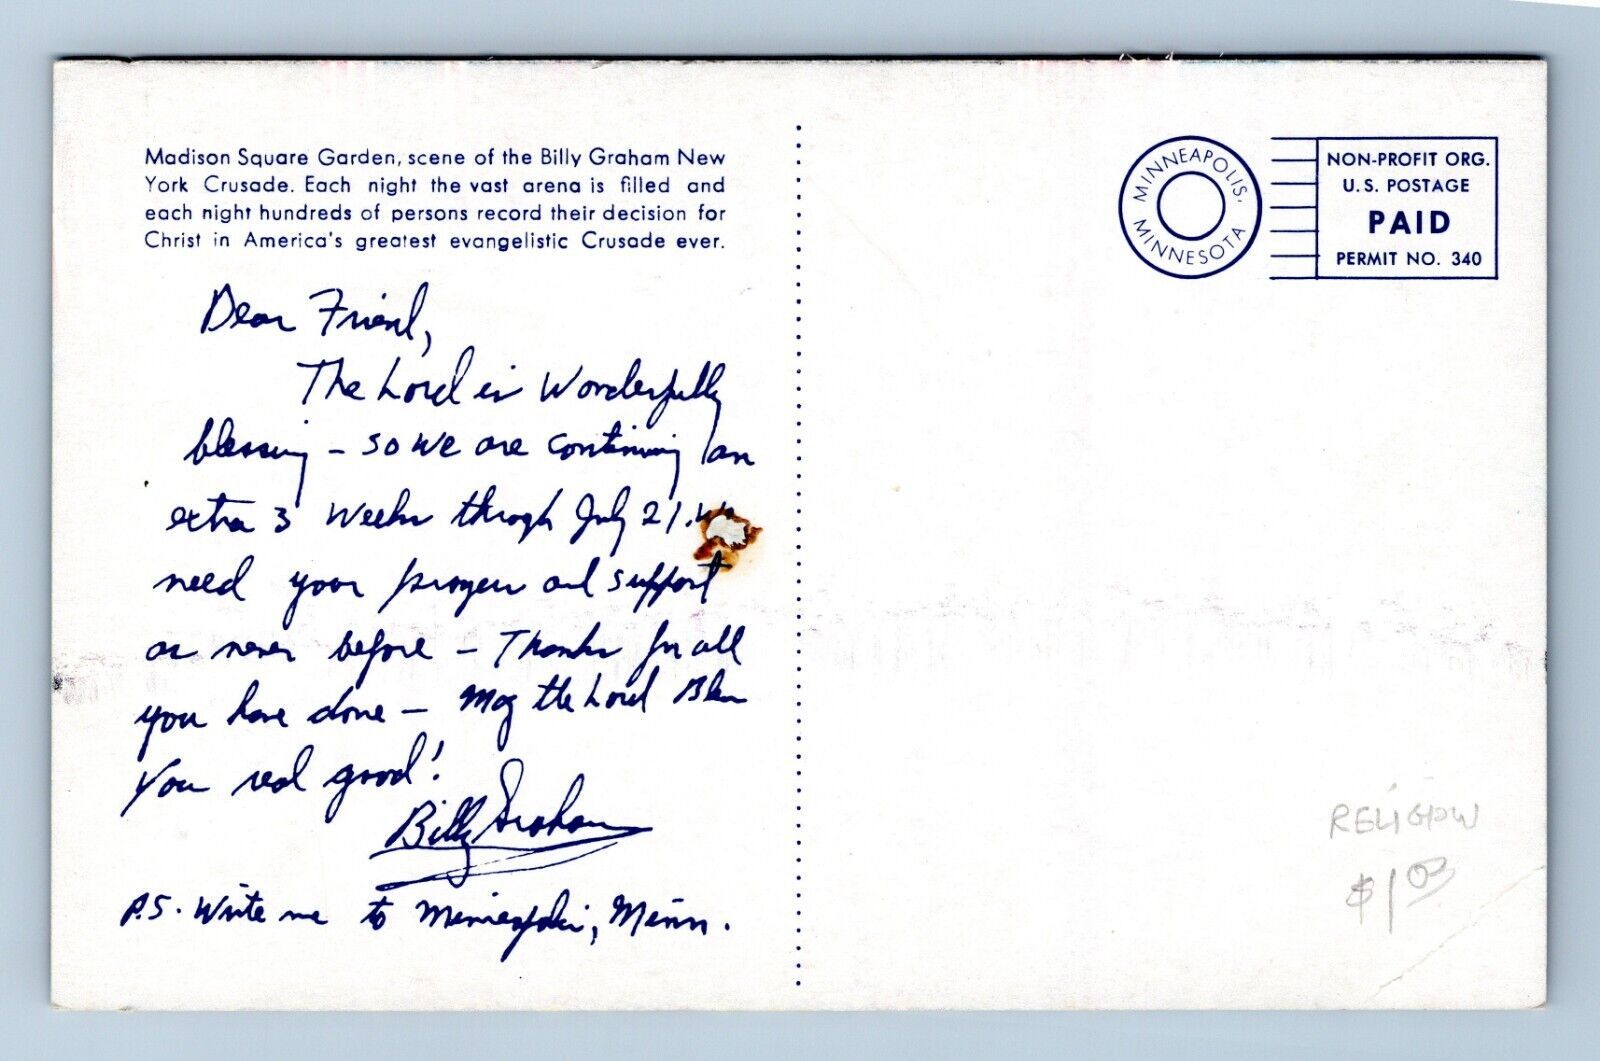 Madison Square Garden, scene of the Billy Graham New
York Crusade. Each night the vast arena is filled and
each night hundreds of persons record their decision for
Christ in America's greatest evangelistic Crusade ever.
Dear Friend,
The Lord is Wonderfully
blessing – so we are continuing an
extra 3 weeks through July 21.
need your prayers and support
as never before – Thanks for all
you have done – May the Lord Bless
You real good!
Billy Graham
P.S. Write me to Minneapolis, Minn.
MINNEAPOLIS,
MINNESOTA
NON-PROFIT ORG.
U.S. POSTAGE
PAID
PERMIT NO. 340
RELIGION
$1.03